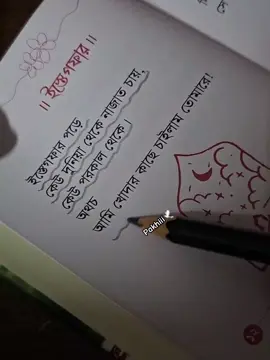 ॥ ইস্তেগফার ॥
ইস্তেগফার পড়ে
কেউ দুনিয়া থেকে নাজাত চায়,
কেউ পরকাল থেকে।
অথচ
আমি খোদার কাছে চাইলাম তোমারে!
Pakhiii